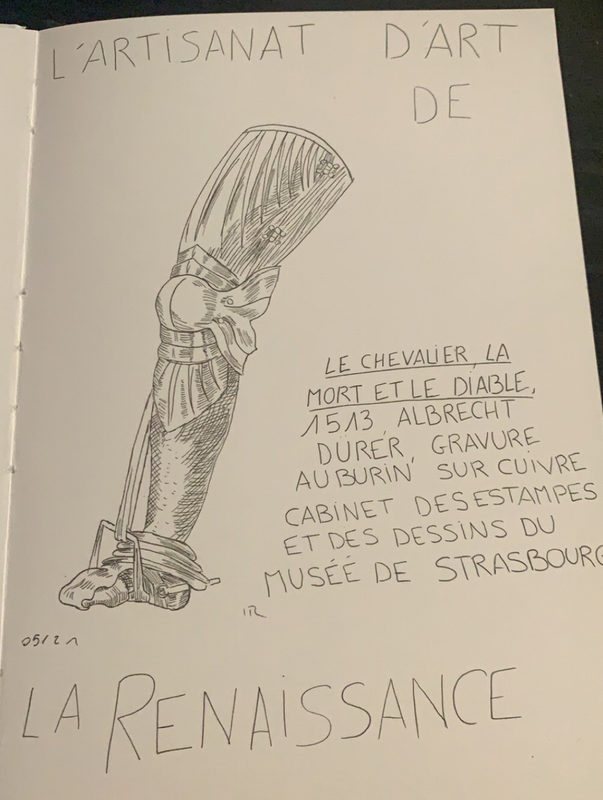 L'ARTISANAT D'ART
DE
LE CHEVALIER, LA
MORT ET LE DIABLE,
1513, ALBRECHT
DÜRER, GRAVURE
AU BURIN SUR CUIVRE
CABINET DES ESTAMPES
ET DES DESSINS DU
MUSÉÉ DE STRASBOURG
05/21
LA RENAISSANCE